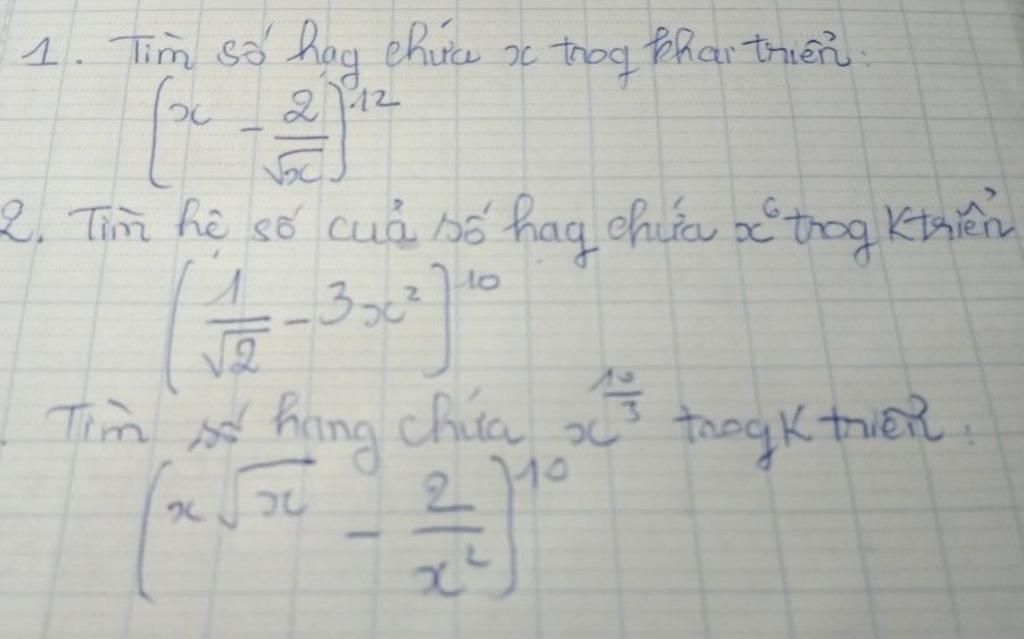 1. Tìm số hag chứa x trog khai triển.
[x - 2/√x]^12
2. Tìm hệ số của số hag chứa x^6 trog Ktriển
[1/√2 - 3x^2]^10
. Tìm số hạng chứa x^(10/3) trog K triển.
(x√x - 2/x^2)^10